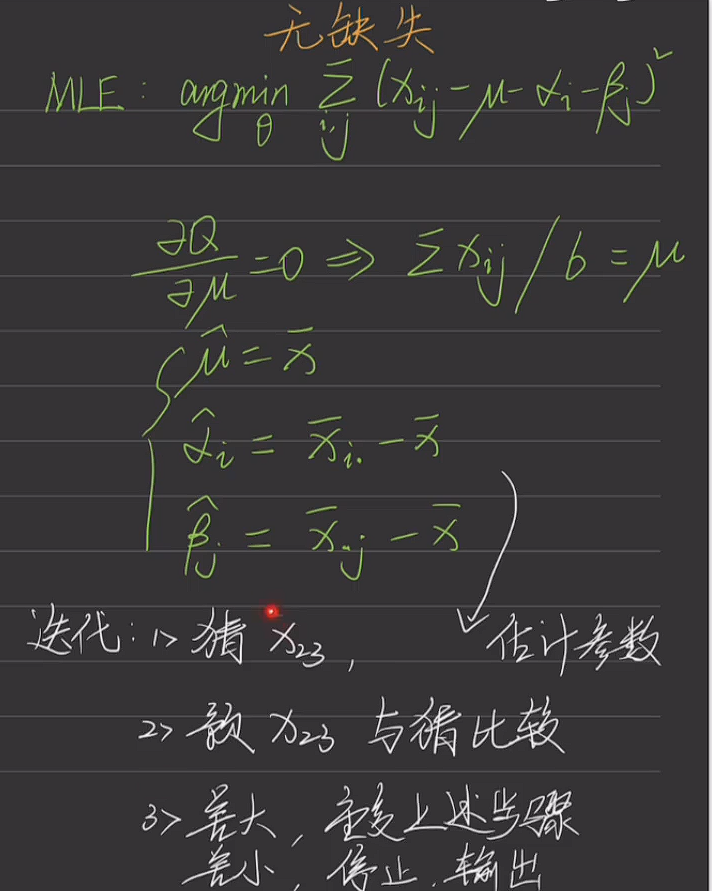 无缺失
MLE: argmin_θ Σ_{i,j} (x_{ij} - μ - α_i - β_j)²
∂Q/∂μ = 0 ⇒ Σ x_{ij} / 6 = μ
μ̂ = x̄
α̂_i = x̄_{i.} - x̄
β̂_j = x̄_{.j} - x̄
迭代: 1> 猜 x_{23}, 估计参数
2> x_{23} 与猜比较
3> 差大, 重复上述步骤
差小, 停止, 输出